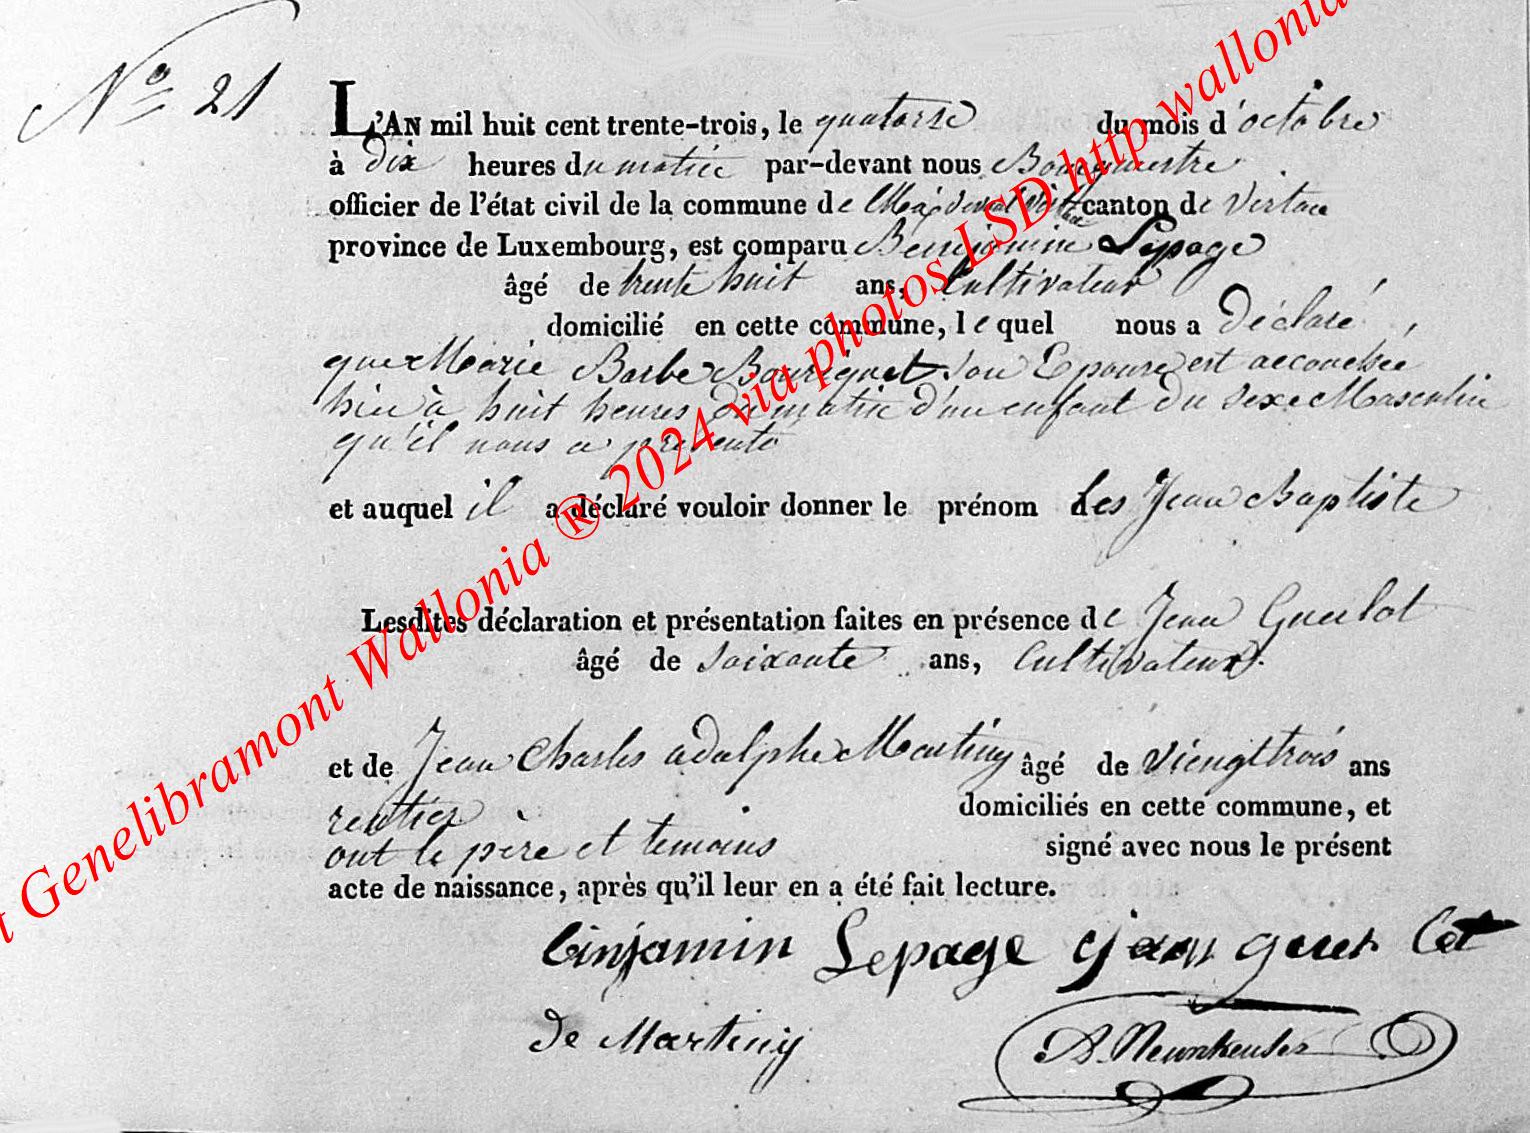 No 21
L'AN mil huit cent trente-trois, le quatorze du mois d'octobre
à dix heures du matin par-devant nous Bourgmestre
officier de l'état civil de la commune de canton de Virton
province de Luxembourg, est comparu Benjamin Lepage
âgé de trente huit ans, Cultivateur
domicilié en cette commune, lequel nous a déclaré
que Marie Barbe Bourguet son Epouse est accouchée
hier à huit heures du matin d'un enfant du sexe Masculin
qu'il nous a présenté
et auquel il a déclaré vouloir donner le prénom des Jean Baptiste
Lesdites déclaration et présentation faites en présence de Jean Guerlot
âgé de soixante ans, Cultivateur.
et de Jean Charles adolphe Martiny âgé de viengttrois ans
rentier domiciliés en cette commune, et
ont le père et temoins signé avec nous le présent
acte de naissance, après qu'il leur en a été fait lecture.
binjamin Lepage jean guer Lot
de Martiny
Genelibramont Wallonia ® 2024 via photos LSD http wallonia